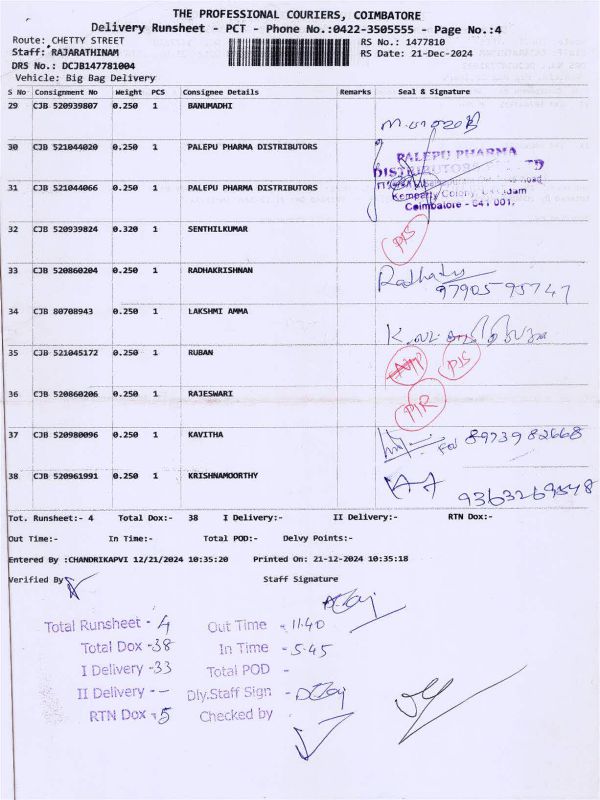 THE PROFESSIONAL COURIERS, COIMBATORE
Delivery Runsheet - PCT - Phone No.:0422-3505555 - Page No.:4
Route: CHETTY STREET
RS No.: 1477810
Staff: RAJARATHINAM
RS Date: 21-Dec-2024
DRS No.: DCJB147781004
Vehicle: Big Bag Delivery
S No Consignment No Weight PCS Consignee Details Remarks Seal & Signature
29 CJB 520939807 0.250 1 BANUMADHI
30 CJB 521044020 0.250 1 PALEPU PHARMA DISTRIBUTORS
PALEPU PHARMA
31 CJB 521044066 0.250 1 PALEPU PHARMA DISTRIBUTORS
Coimbatore - 641 001.
32 CJB 520939824 0.320 1 SENTHILKUMAR
33 CJB 520860204 0.250 1 RADHAKRISHNAN
34 CJB 80708943 0.250 1 LAKSHMI AMMA
35 CJB 521045172 0.250 1 RUBAN
36 CJB 520860206 0.250 1 RAJESWARI
37 CJB 520980096 0.250 1 KAVITHA 8973982668
38 CJB 520961991 0.250 1 KRISHNAMOORTHY
Tot. Runsheet:- 4 Total Dox:- 38 I Delivery:- II Delivery:- RTN Dox:-
Out Time:- In Time:- Total POD:- Delvy Points:-
Entered By :CHANDRIKAPVI 12/21/2024 10:35:20 Printed On: 21-12-2024 10:35:18
Verified By Staff Signature
Total Runsheet - 4 Out Time - 11.40
Total Dox - 38 In Time - 5.45
I Delivery - 33 Total POD -
II Delivery - - Dly.Staff Sign -
RTN Dox - 5 Checked by